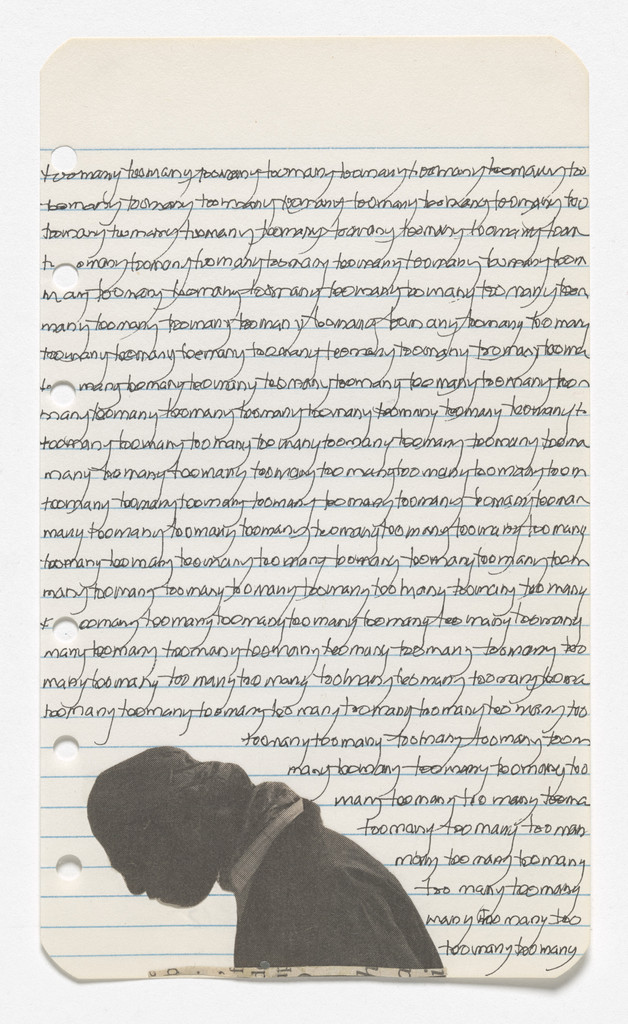 toomanytoomanytoomanytoomanytoomanytoomanytoomanytoo
toomanytoomanytoomanytoomanytoomanytoomanytoomanytoo
toomanytoomanytoomanytoomanytoomanytoomanytoomanytooman
t omanytoomanytoomanytoomanytoomanytoomanytoomanytoom
manytoomanytoomanytoomanytoomanytoomanytoomanytoom
manytoomanytoomanytoomanytoomanytoomanytoomanytoomany
toomanytoomanytoomanytoomanytoomanytoomanytoomanytooma
t manytoomanytoomanytoomanytoomanytoomanytoomanytoo
manytoomanytoomanytoomanytoomanytoomanytoomanytoomanyt
toomanytoomanytoomanytoomanytoomanytoomanytoomanytooma
manytoomanytoomanytoomanytoomanytoomanytoomanytoom
toomanytoomanytoomanytoomanytoomanytoomanytoomanytooman
manytoomanytoomanytoomanytoomanytoomanytoomanytoomany
toomanytoomanytoomanytoomanytoomanytoomanytoomanytoom
manytoomanytoomanytoomanytoomanytoomanytoomanytoomany
t oomanytoomanytoomanytoomanytoomanytoomanytoomany
manytoomanytoomanytoomanytoomanytoomanytoomanytoo
manytoomanytoomanytoomanytoomanytoomanytoomanytooma
toomanytoomanytoomanytoomanytoomanytoomanytoomanytoo
toomanytoomanytoomanytoomanytoom
manytoomanytoomanytoomanytoo
manytoomanytoomanytooma
toomanytoomanytooman
manytoomanytoomany
toomanytoomany
manytoomanytoo
toomanytoomany